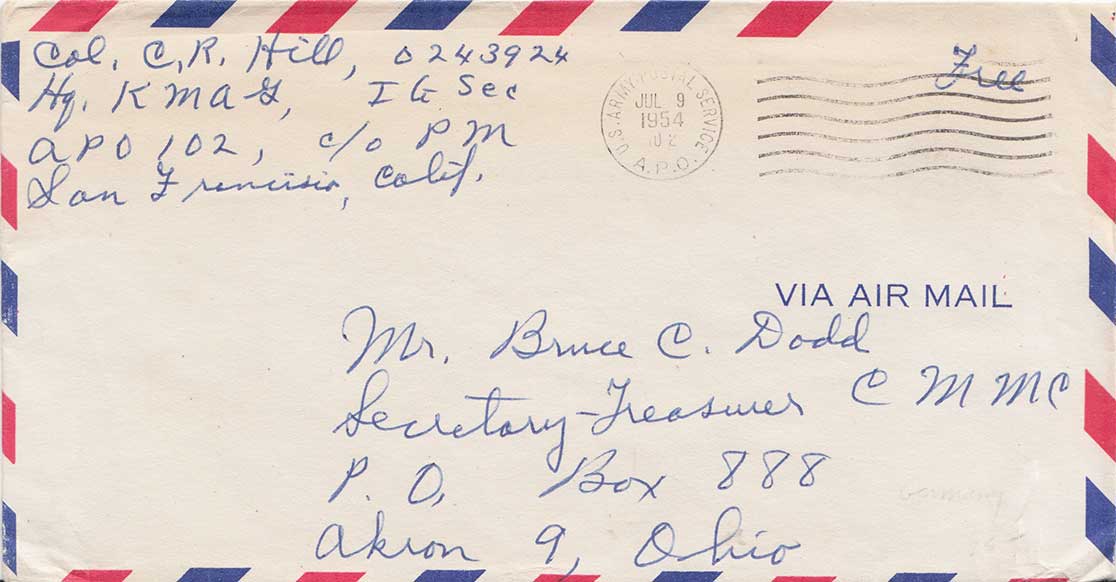 Col. C. R. Hill, O243924
Hq. KMAG, IG Sec
APO 102, c/o PM
San Francisio, Calif.
U.S. ARMY POSTAL SERVICE
JUL 9
1954
A.P.O.
Free
VIA AIR MAIL
Mr. Bruce C. Dodd
Secretary-Treasurer CMMC
P. O. Box 888
Akron 9, Ohio
Germany